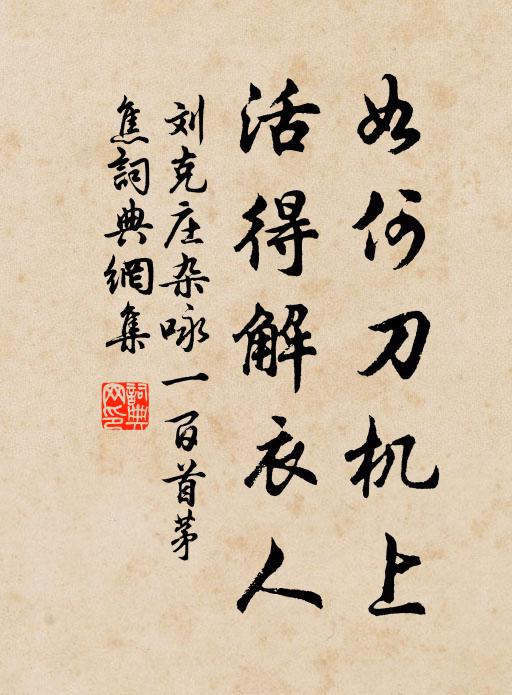 如何刀机上
活得解衣人
刘克庄杂咏一百首茅
焦詞典網集
詞典网印